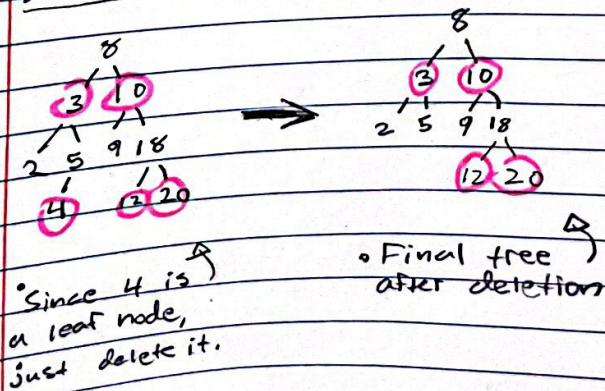 8
3 10
2 5 9 18
4 12 20
• Since 4 is
a leaf node,
just delete it.
8
3 10
2 5 9 18
12 20
• Final tree
after deletion